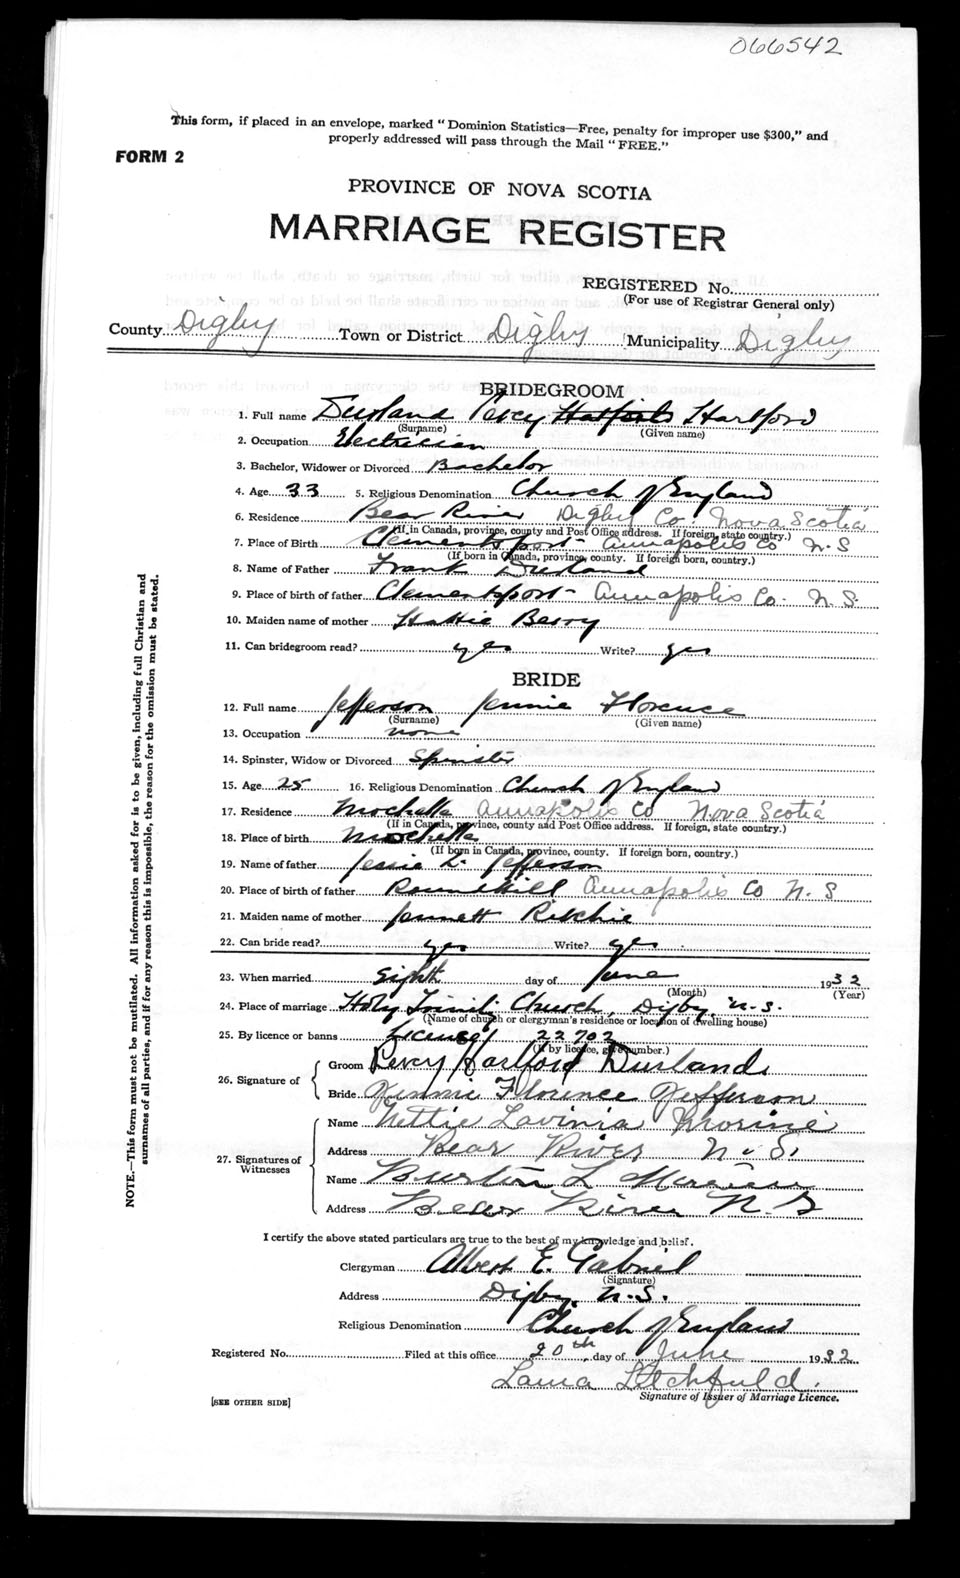 066542
This form, if placed in an envelope, marked "Dominion Statistics—Free, penalty for improper use $300," and
properly addressed will pass through the Mail "FREE."
FORM 2
PROVINCE OF NOVA SCOTIA
MARRIAGE REGISTER
REGISTERED No.
(For use of Registrar General only)
County Digby Town or District Digby Municipality Digby
BRIDEGROOM
1. Full name Durland Percy Hartford
(Surname) (Given name)
2. Occupation Electrician
3. Bachelor, Widower or Divorced Bachelor
4. Age 33 5. Religious Denomination Church of England
6. Residence Bear River Digby Co. Nova Scotia
(If in Canada, province, county and Post Office address. If foreign, state country.)
7. Place of Birth Clementsport Annapolis Co N.S
(If born in Canada, province, county. If foreign born, country.)
8. Name of Father Frank Durland
9. Place of birth of father Clementsport - Annapolis Co. N.S.
10. Maiden name of mother Hattie Berry
11. Can bridegroom read? yes Write? yes
BRIDE
12. Full name Jefferson Jennie Florence
(Surname) (Given name)
13. Occupation none
14. Spinster, Widow or Divorced Spinster
15. Age 25 16. Religious Denomination Church of England
17. Residence Mochelle Annapolis Co Nova Scotia
(If in Canada, province, county and Post Office address. If foreign, state country.)
18. Place of birth Mochelle
(If born in Canada, province, county. If foreign born, country.)
19. Name of father Jessie L. Jefferson
20. Place of birth of father Round Hill Annapolis Co N.S
21. Maiden name of mother Jennett Ritchie
22. Can bride read? yes Write? yes
23. When married eighth day of June 1932
(Month) (Year)
24. Place of marriage Holy Trinity Church, Digby, N.S.
(Name of church or clergyman's residence or location of dwelling house)
25. By licence or banns License 22702
(If by licence, give number.)
26. Signature of
Groom Percy Hartford Durland
Bride Jennie Florence Jefferson
27. Signatures of Witnesses
Name Nettie Lavinia Morine
Address Bear River N.S.
Name Burton L Morine
Address Bear River N.S
I certify the above stated particulars are true to the best of my knowledge and belief.
Clergyman Albert E. Gabriel
(Signature)
Address Digby, N.S.
Religious Denomination Church of England
Registered No. Filed at this office 20th day of June 1932
Laura
Signature of Issuer of Marriage Licence.
[SEE OTHER SIDE]
NOTE.—This form must not be mutilated. All information asked for is to be given, including full Christian and
surnames of all parties, and if for any reason this is impossible, the reason for the omission must be stated.